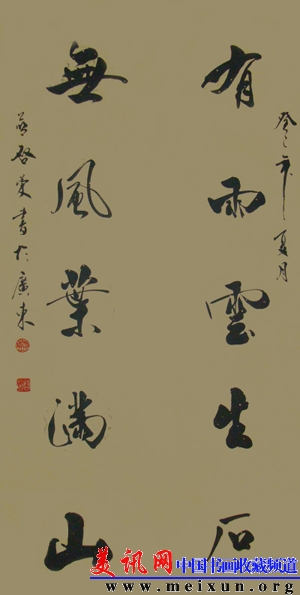 癸巳年夏月
有雨雲生石
無風葉滿山
啓書於廣東
美讯网 中国书画收藏频道
www.meixun.org